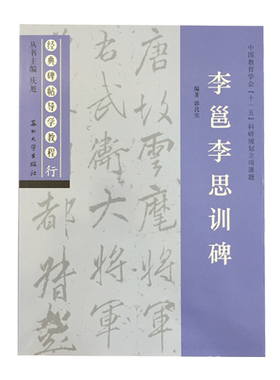 中国教育学会「十一五」科研规划立项课题
李邕李思训碑
编著
唐故雲麾将軍
右武衛大将軍
经典碑帖导学教程
行
丛书主编
苏州大学出版社